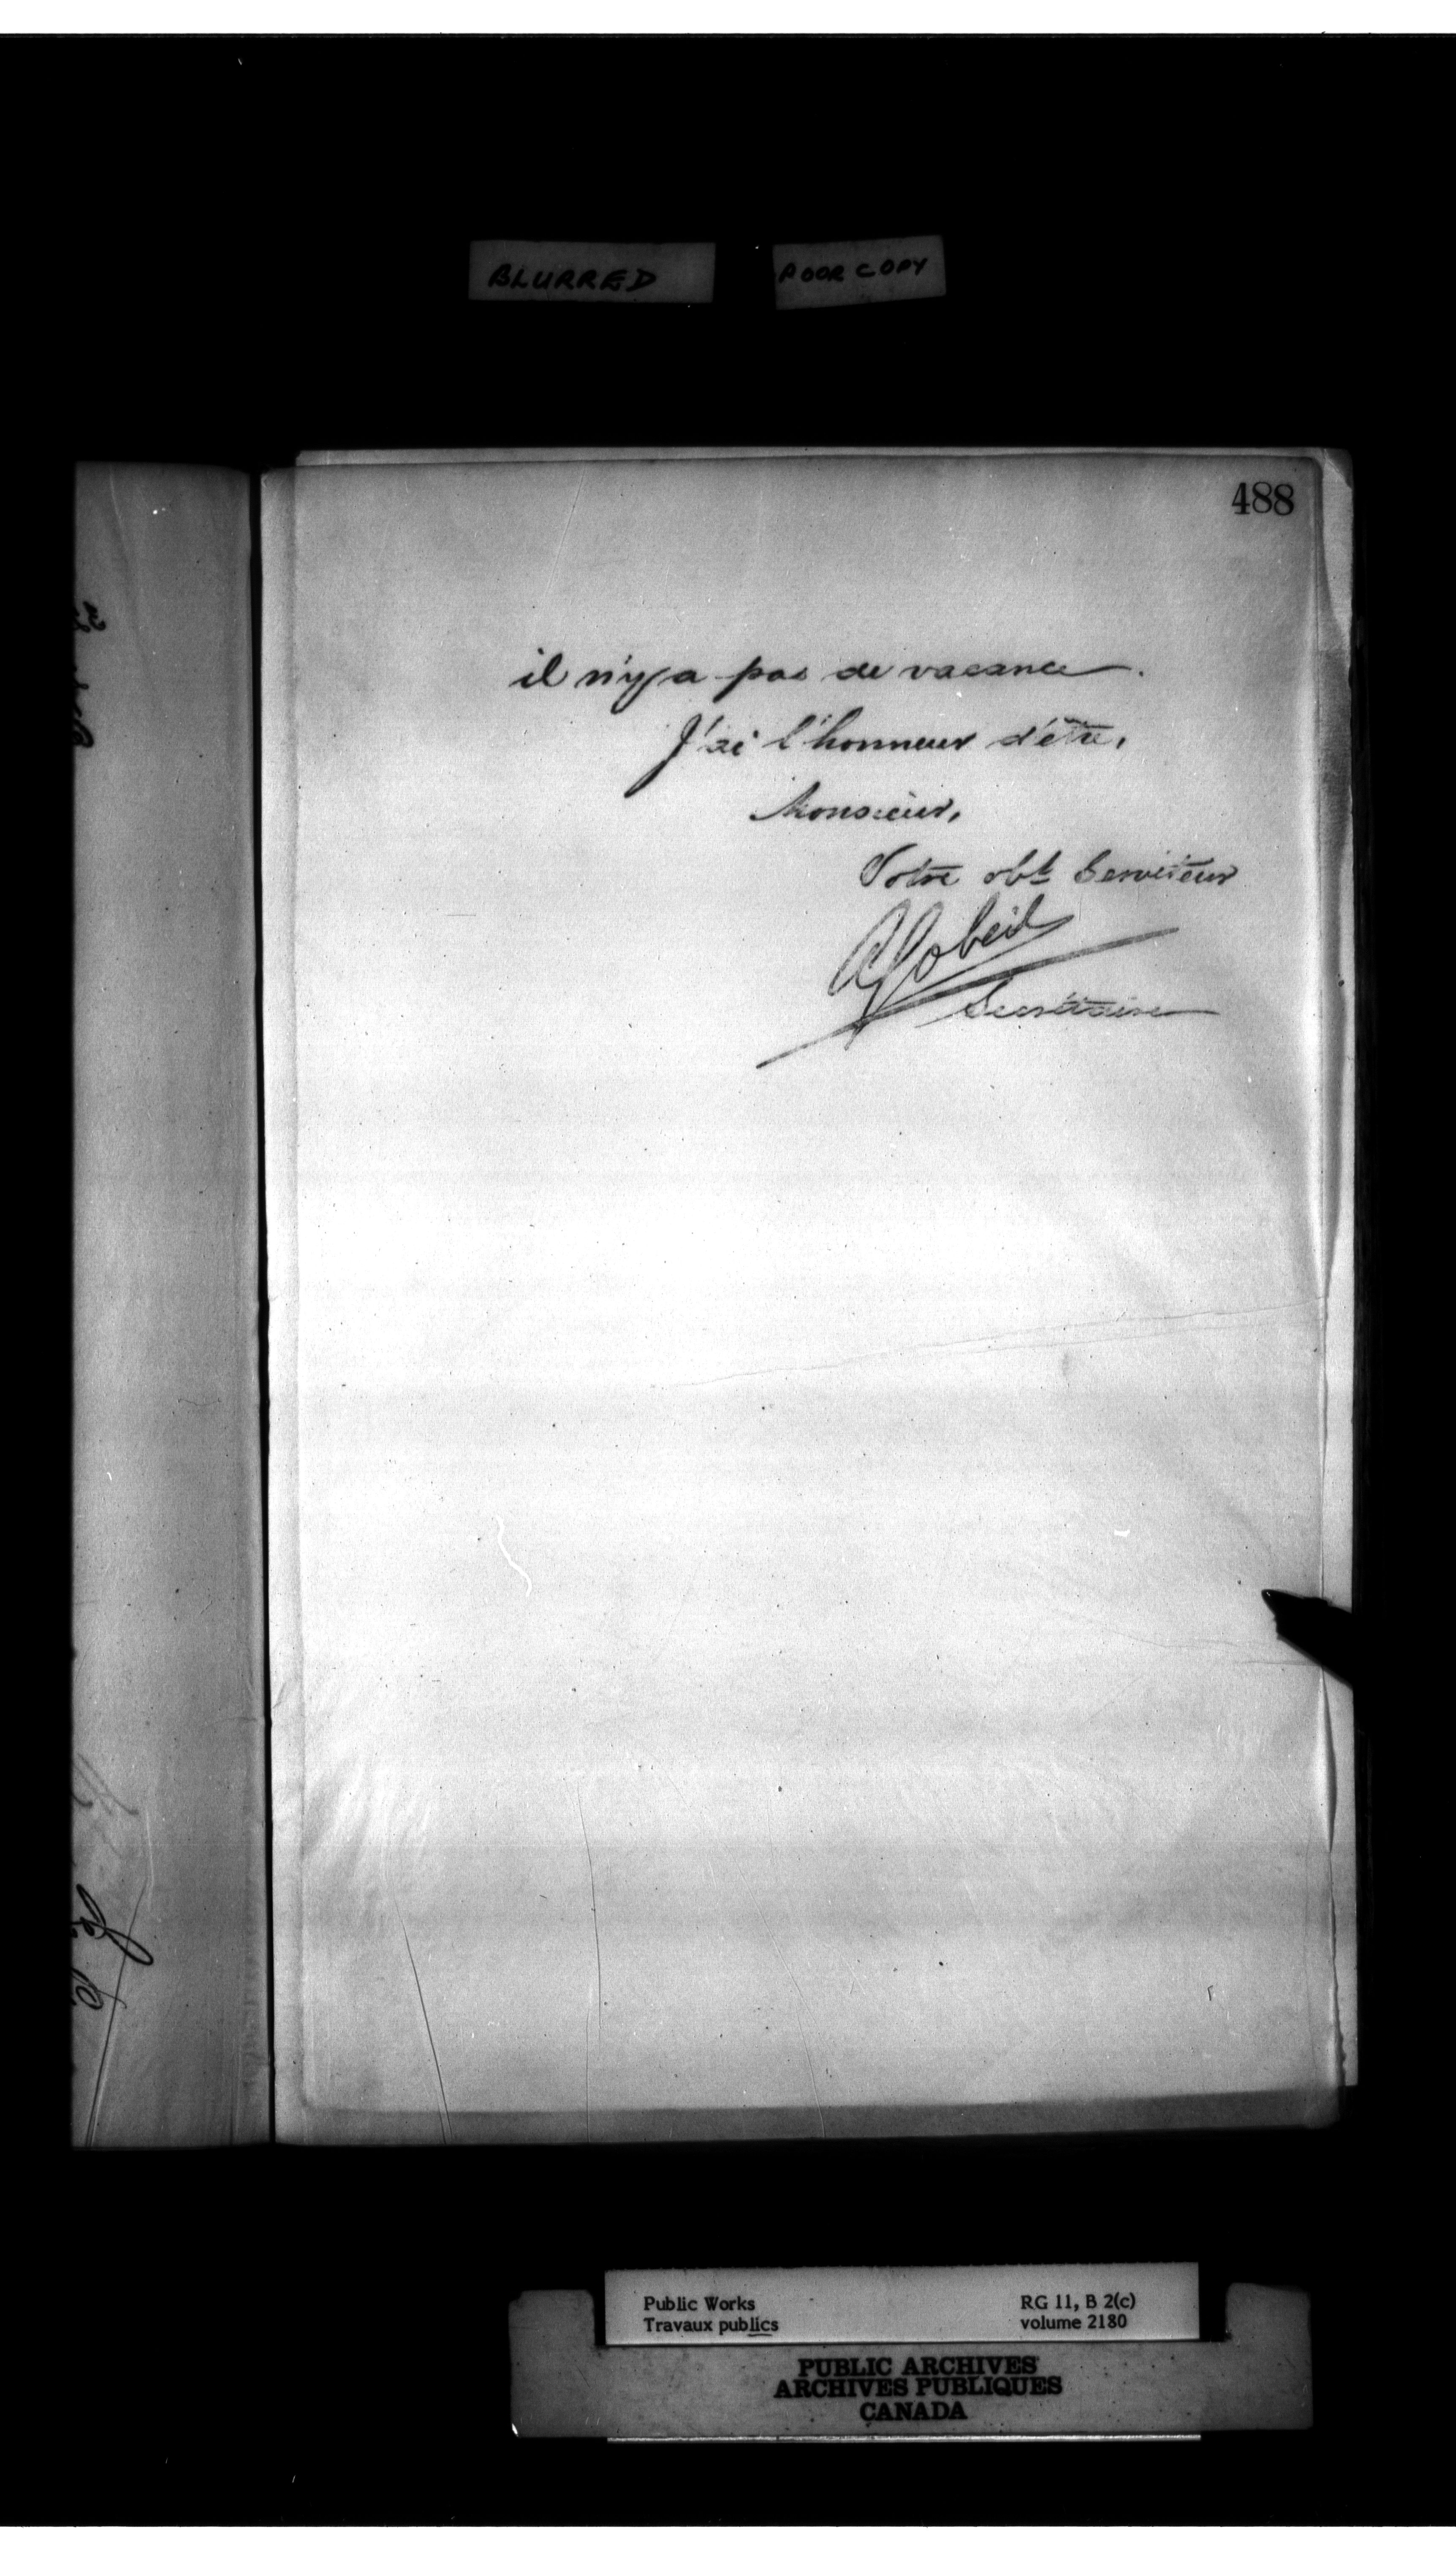 BLURRED POOR COPY
488
il n'y a pas de vacance.
J'ai l'honneur d'être,
Monsieur,
Votre obt Serviteur
AGobeil
Secrétaire
Public Works RG 11, B 2(c)
Travaux publics volume 2180
PUBLIC ARCHIVES
ARCHIVES PUBLIQUES
CANADA